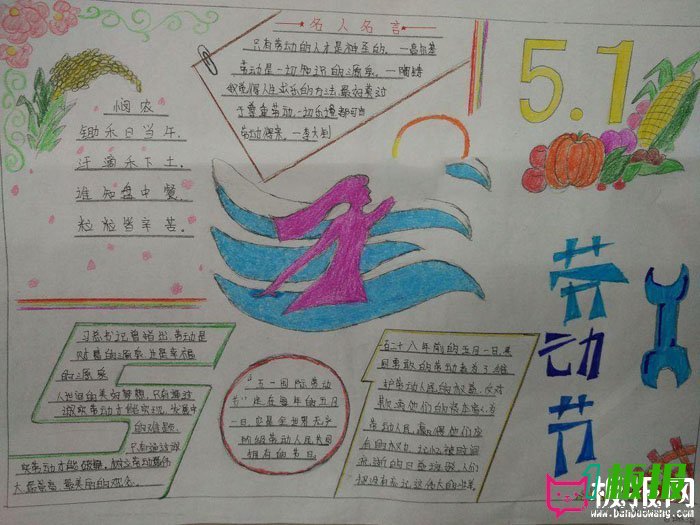 ★名人名言★
只有劳动的人才是神圣的。—高尔基
劳动是一切知识的源泉。—陶铸
我觉得人生求乐的方法,最好莫过
于尊重劳动,一切乐境都可由
劳动得来。—李大钊
5.1
悯农
锄禾日当午,
汗滴禾下土。
谁知盘中餐,
粒粒皆辛苦。
劳动节
习总书记曾指出:劳动是
财富的源泉,也是幸福
的源泉
人世间的美好梦想,只有通过
诚实劳动才能实现;发展中
的难题
只有通过诚
实劳动才能破解。树立劳动最伟
大最崇高、最美丽的观念。
"五一国际劳动
节"定在每年的五月
一日,它是全世界无产
阶级劳动人民共同
拥有的节日
百二十八年前的五月一日,美
国勇敢的劳动者为了维
护劳动人民的权益,反对
欺压他们的资本家,为
劳动人民赢得他们应
有的权力
板报
板报网
www.banbaowang.com